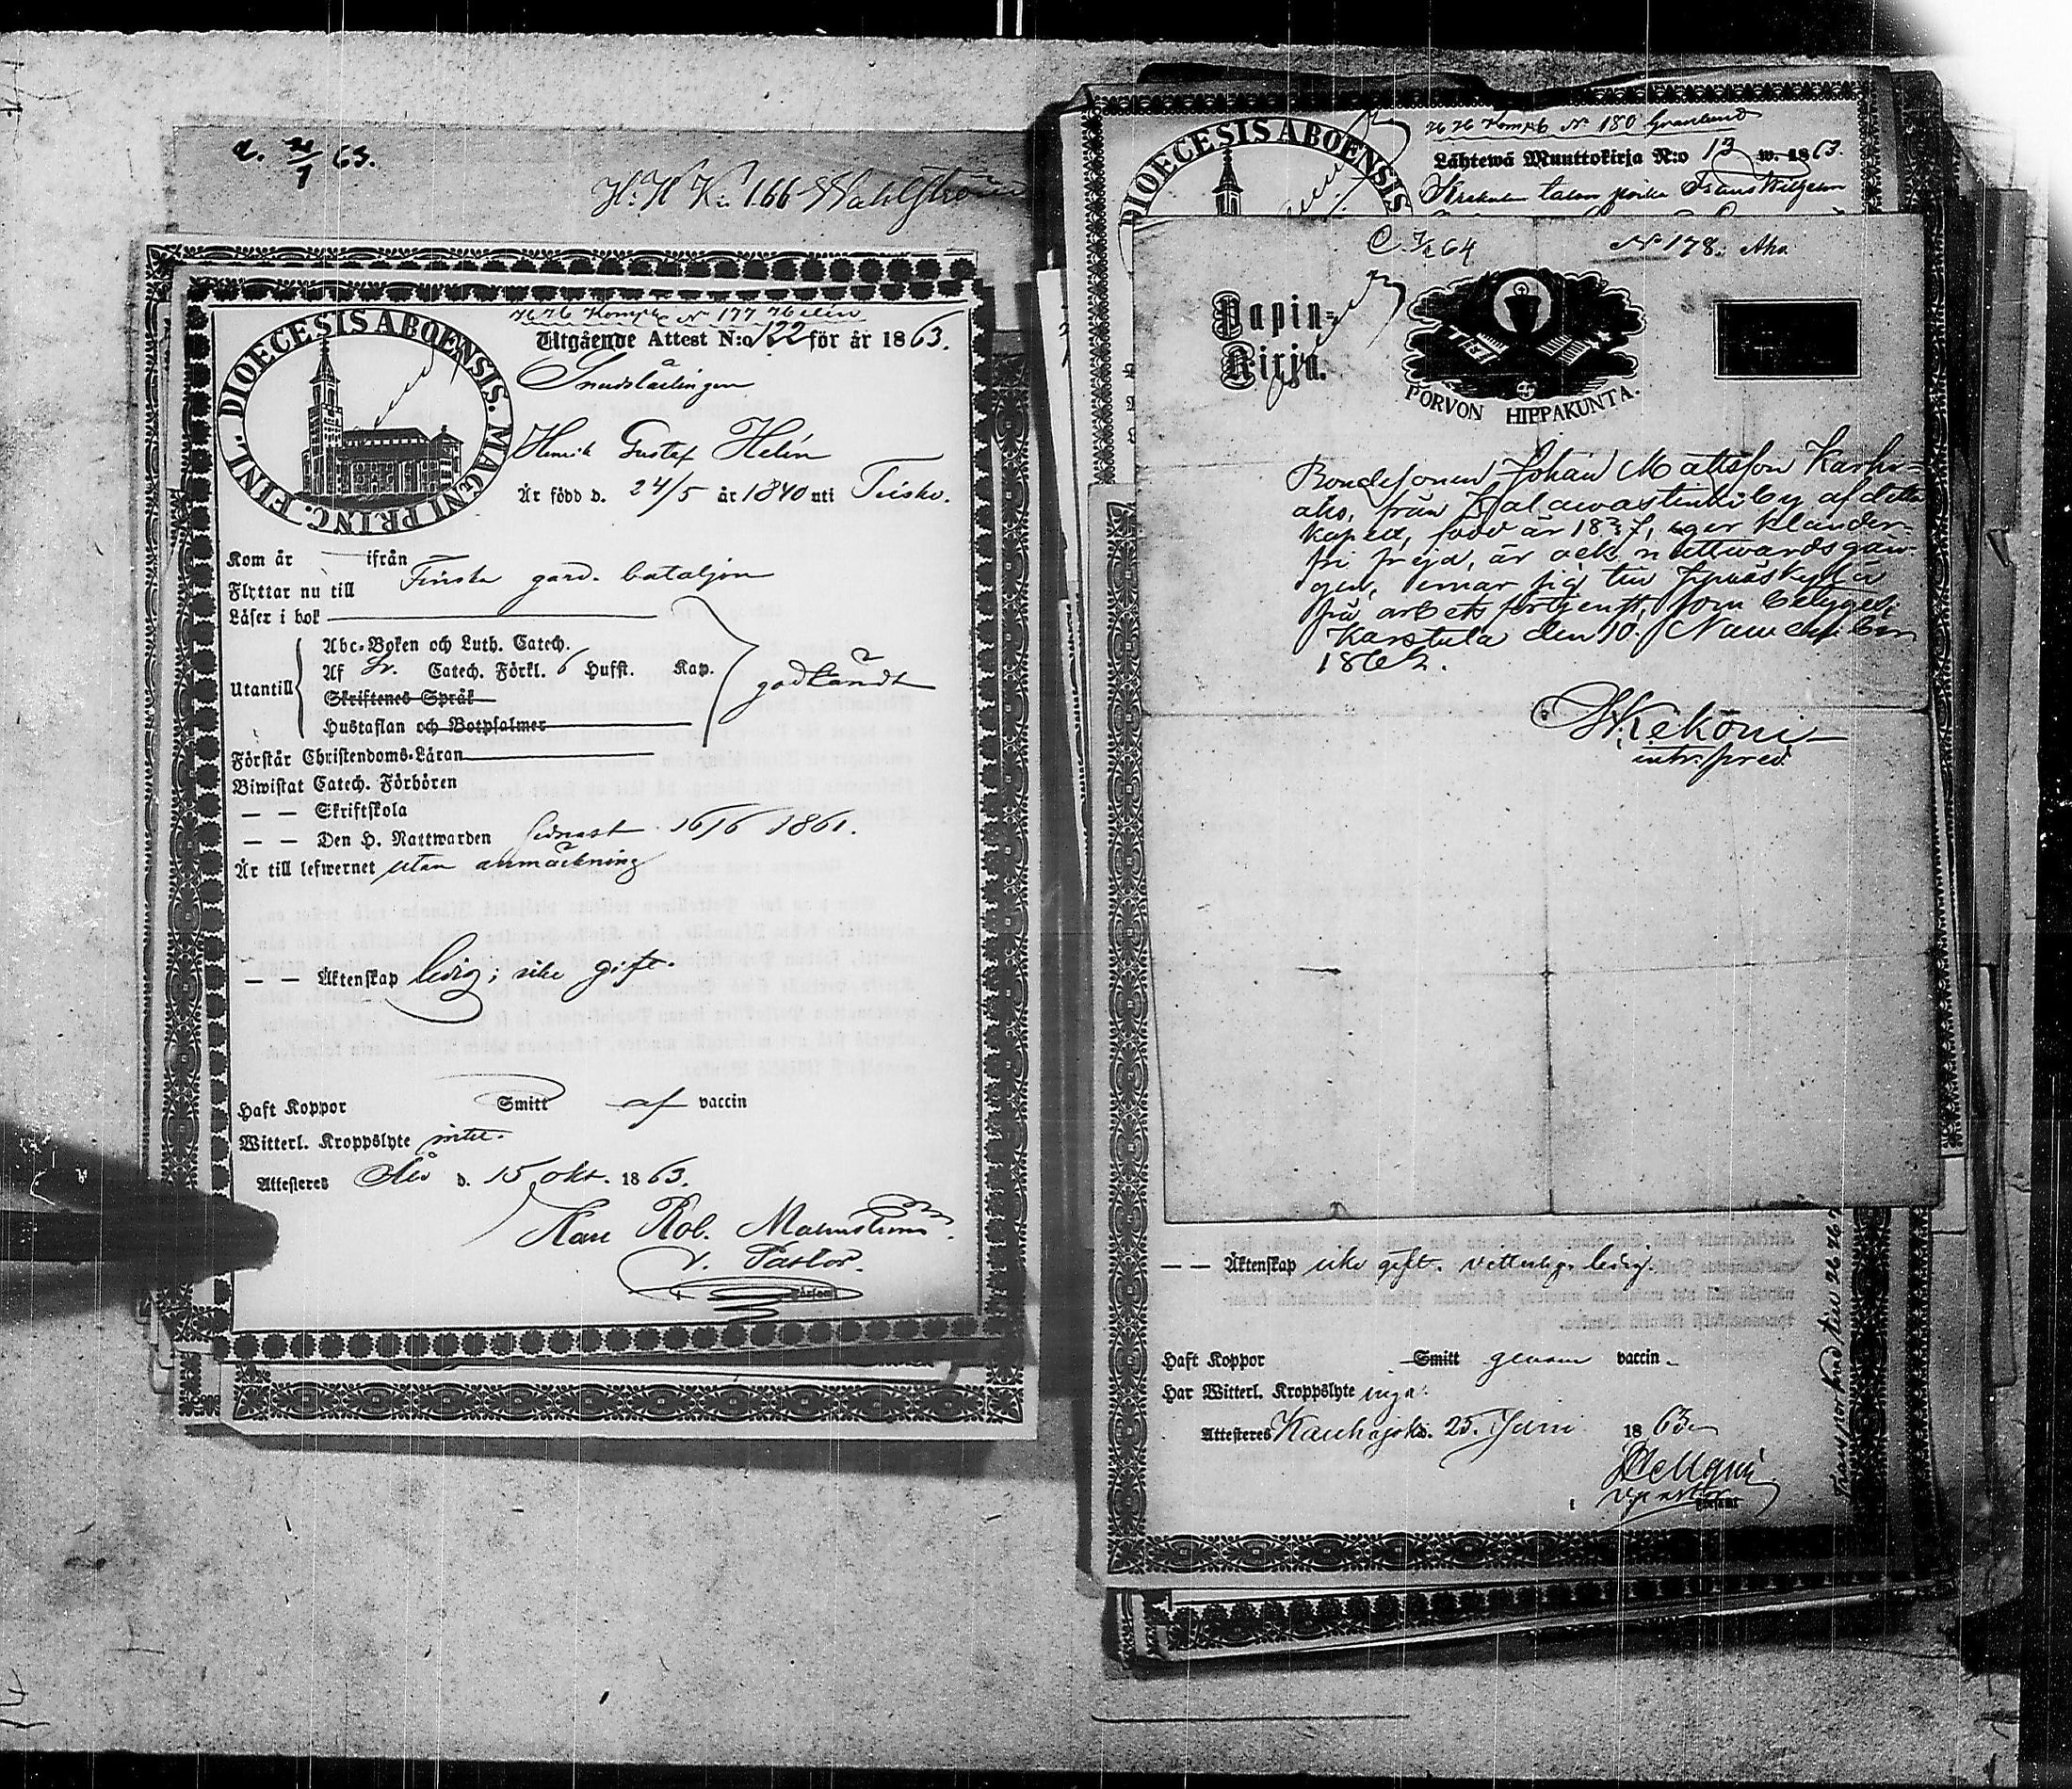 c. 21/1 63.
H. H. K. 166 Wahlström
H H Komp. N 177 Helin
DIOECESIS ABOENSIS. MAGNI PRINC. FINL.
Utgående Attest N:o 122 för år 1863.
Smedslärlingen
Henrik Gustaf Helin
Är född d. 24/5 år 1840 uti
Kom år — ifrån
Flyttar nu till Finska gard. bataljon
Läser i bok
Utantill
Abc-Boken och Luth. Catech.
Af Sv. Catech. Förkl. 6 Hufst. Kap.
Skriftenes Språk
Hustaflan och Botpsalmer
godkändt
Förstår Christendoms-Läran
Biwistat Catech. Förhören
— — Skriftskola
— — Den H. Nattwarden senast 16/6 1861.
Är till lefwernet utan anmärkning
— — Äktenskap ledig; icke gift.
Haft Koppor Smitt af vaccin
Witterl. Kroppslyte intet.
Attesteras Åbo d. 15 okt. 1863.
Karl Rob. Malmström
v. Pastor.
DIOECESIS ABOENSIS
H H Komp N 180 Granlund
Lähtewä Muuttokirja N:o 13 w. 1863.
talon Frans Wilhelm
C. 64
N 178. Aho
Papin-
Kirja.
PORVON HIPPAKUNTA.
Bondesonen Johan Mattsson Karho-
aho, från Kalawastinki by af detta
kapell, född år 1837, eger klander-
fri frejd, är ock nattwardsgån-
gen, ernar sig till Jyväskylä
på arbetsförtjenst, som betygas;
Karstula den 10. November
1862.
Kekoni
intr. pred.
— — Äktenskap icke gift. vetterlig. ledig.
Haft Koppor Smitt genom vaccin.
Har Witterl. Kroppslyte inga.
Attesteras Kauhajoki d. 25. Juni 1863
Hellgrén
v. pastor